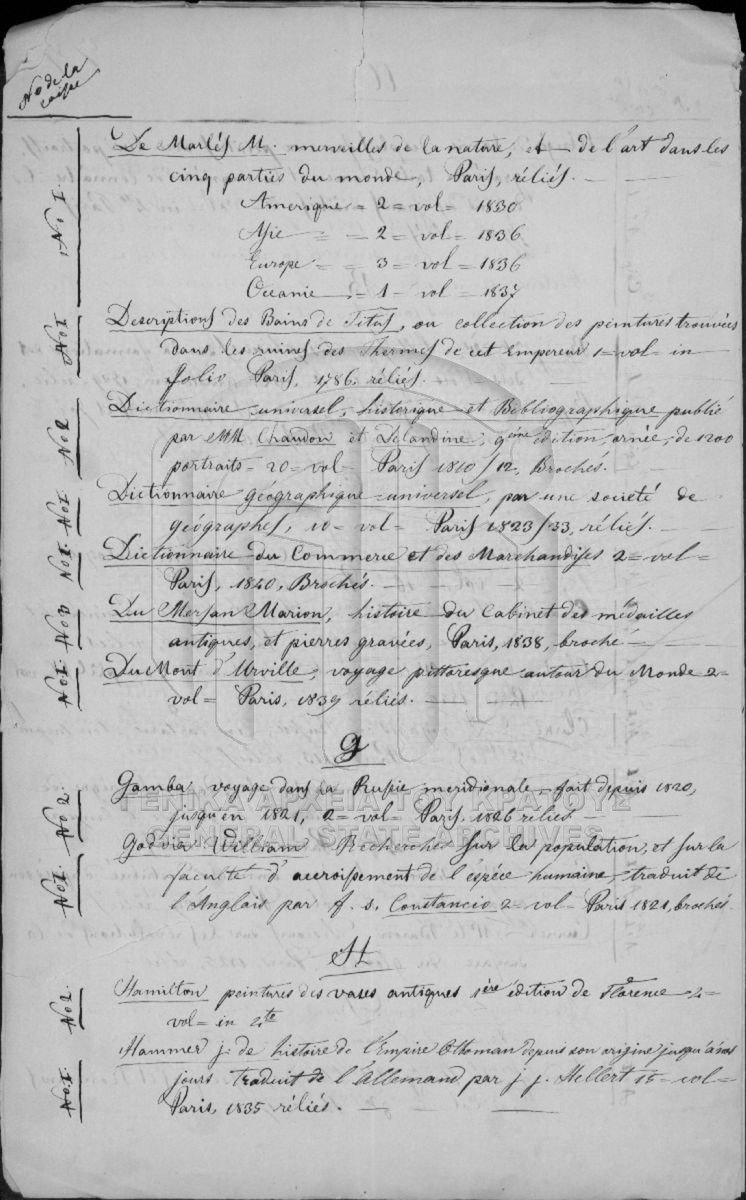 No de la
caisse
De Marlés M. merveilles de la nature, et — de l'art dans les
cinq parties du monde, Paris, réliés.
No I.
Amerique = 2 = vol = 1830
Asie = = 2 = vol = 1836
Europe = = 3 = vol = 1836
Oceanie = 1 = vol = 1837
No I
Descriptions des Bains de Titus, ou collection des peintures trouvées
dans les ruines des Thermes de cet Empereur 1 = vol = in
folio Paris, 1786, réliés.
No 2
Dictionnaire universel, historique et Bibliographique publié
par MM Chaudon et Delandine, 9eme édition, ornée, de 1200
portraits = 20 = vol = Paris 1810/12, Brochés.
No I
Dictionnaire géographique = universel, par une societé de
géographes, 10 = vol = Paris 1823/33, réliés.
No I.
Dictionnaire du Commerce et des Marchandises 2 = vol =
Paris, 1840, Brochés.
No
Du Mersan Marion, histoire du Cabinet des médailles
antiques, et pierres gravées, Paris, 1838, broché
No I
Du Mont d'Urville, voyage pittoresque autour du Monde 2 =
vol = Paris, 1839 réliés.
G
No 2.
Gamba voyage dans la Russie meridionale, fait depuis 1820,
jusqu'en 1821, 2 = vol = Paris, 1826 reliés
ΓΕΝΙΚΑ ΑΡΧΕΙΑ ΤΟΥ ΚΡΑΤΟΥΣ
GENERAL STATE ARCHIVES
No I.
Godvin William Recherches sur la population, et sur la
faculté d'accroissement de l'espéce humaine, traduit de
l'Anglais par f. s. Constancio 2 = vol = Paris 1821, brochés
H
No 2.
Hamilton peintures des vases antiques 1ère édition de Florence 4 =
vol = in 4te
No I.
Hammer j. de histoire de l'Empire Ottoman depuis son origine jusqu'à nos
jours traduit de l'Allemand, par j. j. Hellert 15 = vol =
Paris, 1835 réliés.